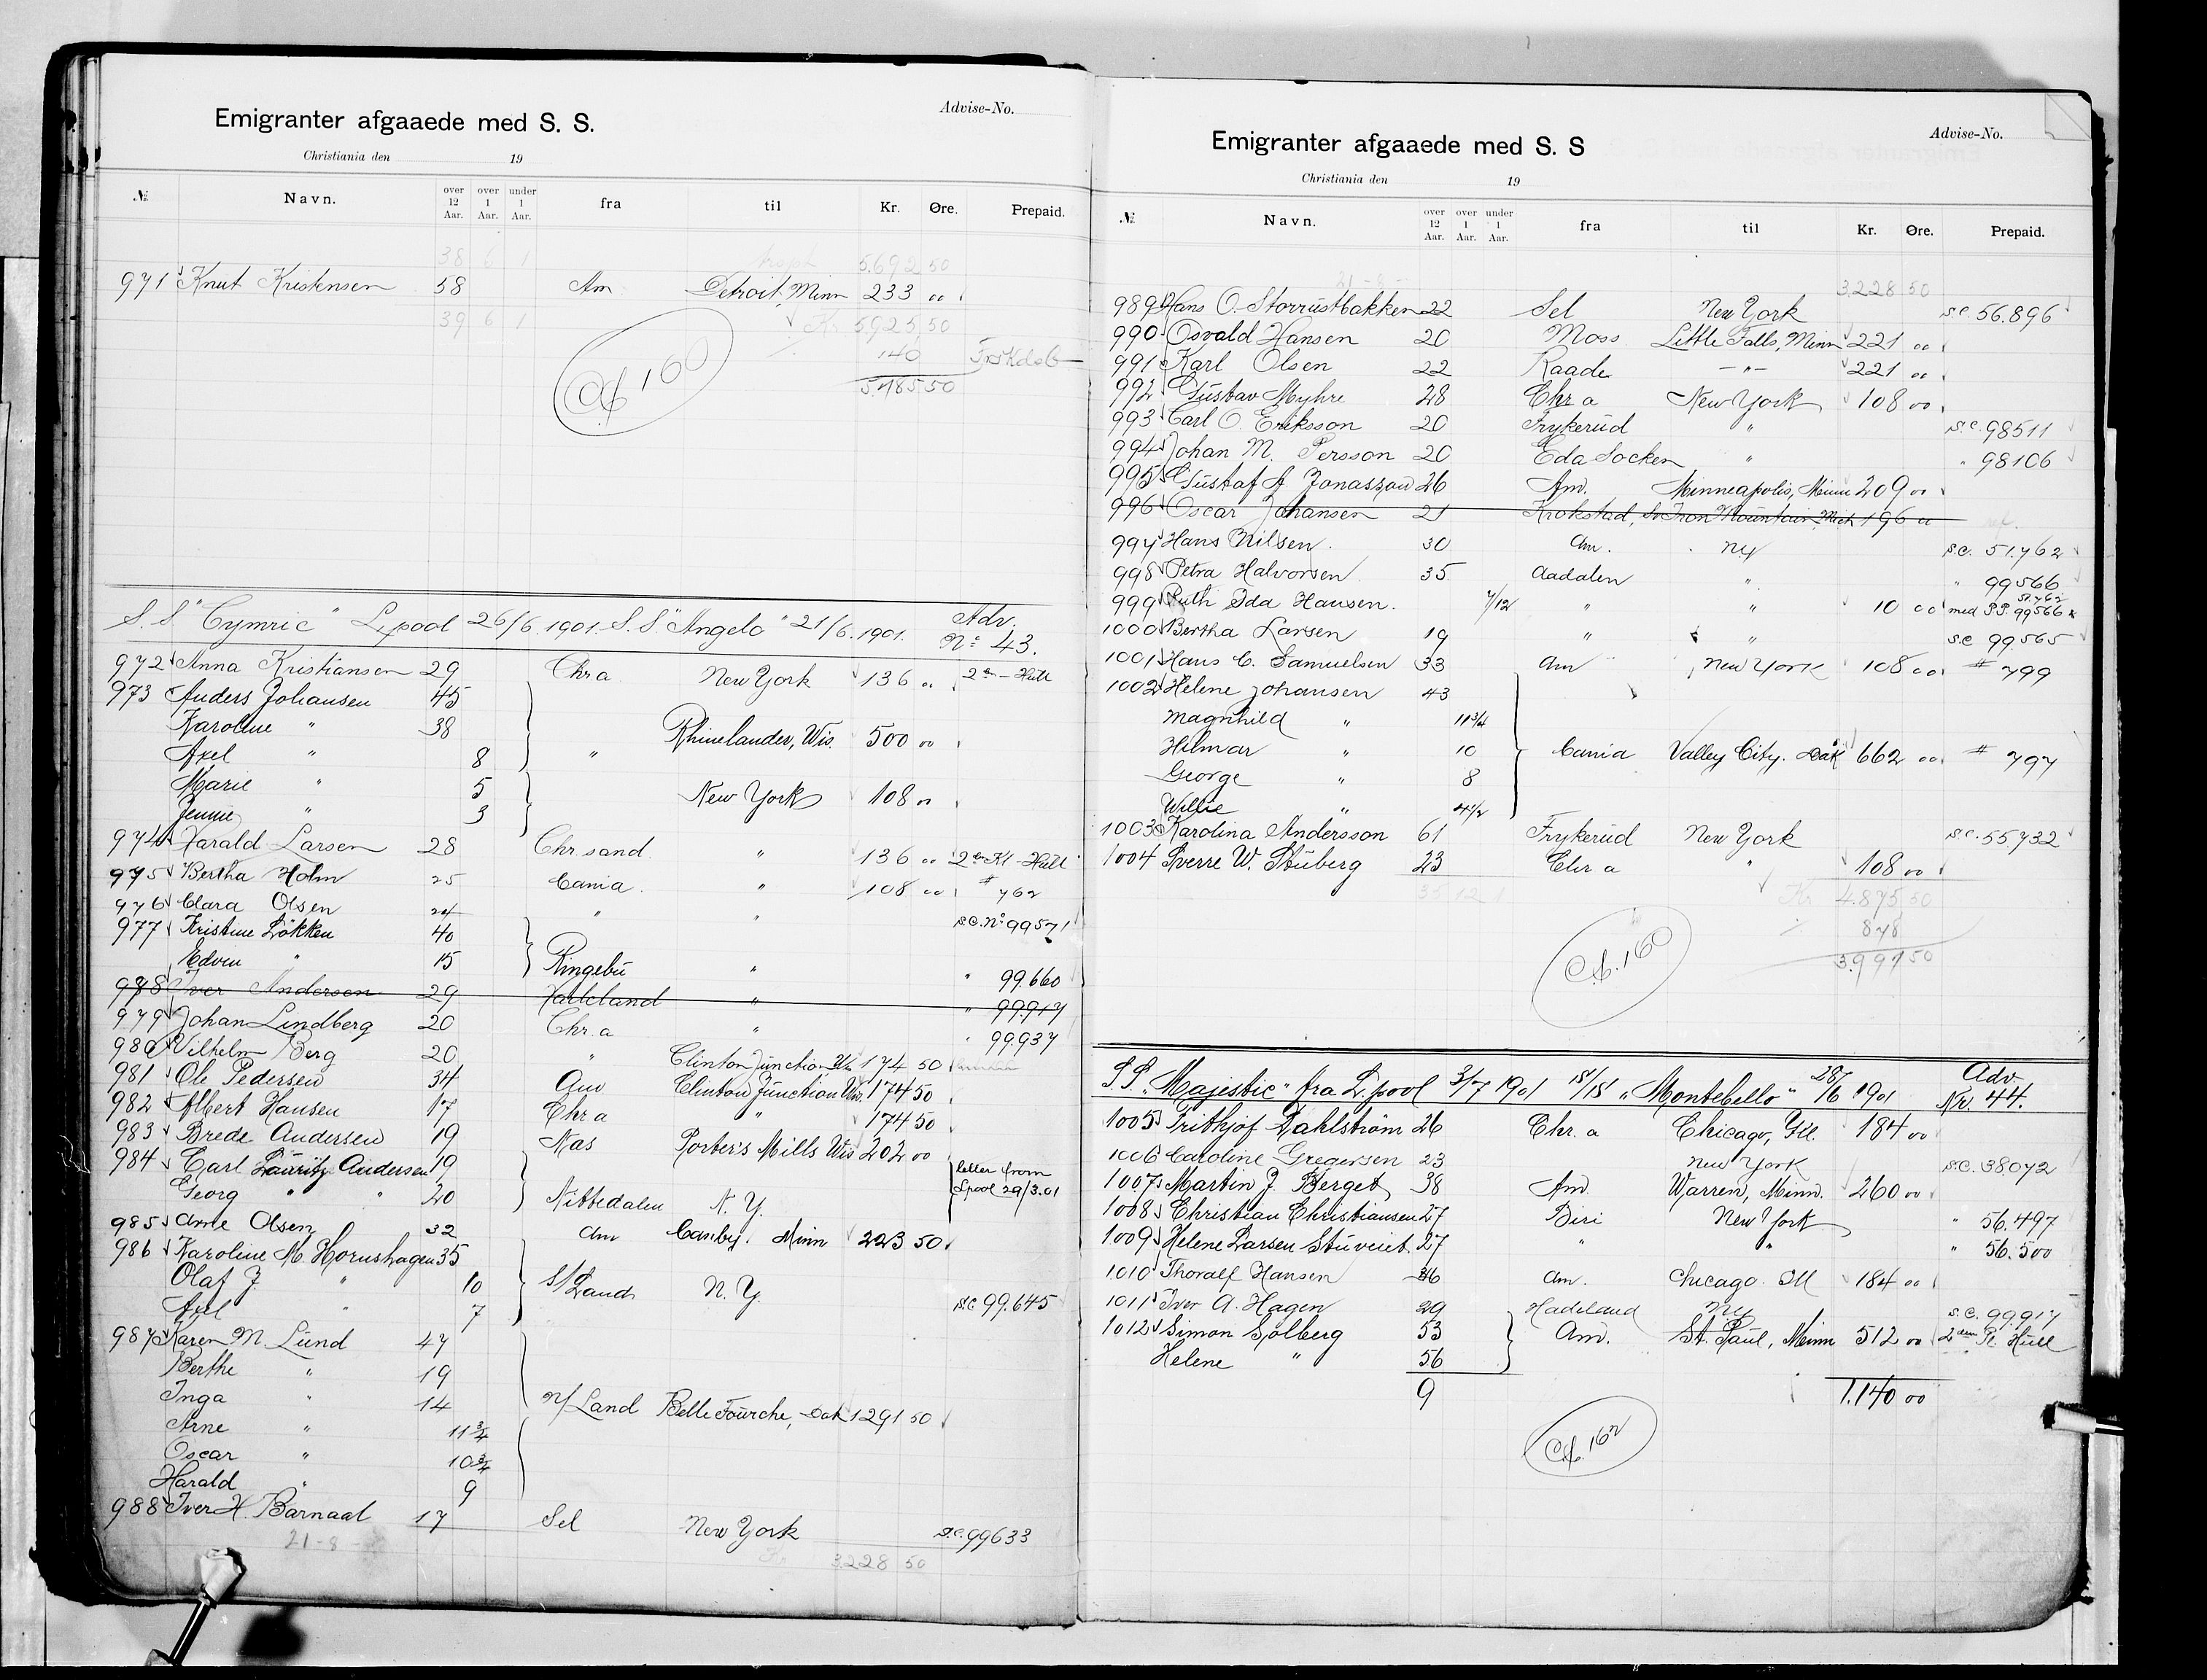 Emigranter afgaaede med S. S. Advise-No.
Christiania den 19
№ Navn. over 12 Aar. over 1 Aar. under 1 Aar. fra til Kr. Øre. Prepaid.
38 6 1 5.692 50
971 Knut Kristensen 58 Am Detroit, Minn 233 00
39 6 1 Kr 5925,50
140
Cf 160
5.785.50
S.S. "Cymric" L.pool 26/6. 1901. S.S. "Angelo" 21/6. 1901. Adv. No: 43.
972 Anna Kristiansen 29 Chr.a New York 136 00 2den Hull
973 Anders Johansen 45
Karoline " 38 Rhinelander, Wis. 500 00
Axel " 8 "
Marie " 5 New York 108 00
Jenny " 3
974 Harald Larsen 28 Chr.sand " 136 00 2den Kl - Hull
975 Bertha Holm 25 Cania " 108 00 # 762
976 Clara Olsen 24 " " s.c. No 99571
977 Kristine Lökken 40
Edvin " 15 Ringebu " " 99.660
978 Iver Andersen 29 Hadeland " " 99.917
979 Johan Lindberg 20 Chr.a " " 99.937
980 Vilhelm Berg 20 " Clinton Junction Wis 174 50
981 Ole Pedersen 34 Am Clinton Junction Wis. 174 50
982 Albert Hansen 17 Chr.a " 174 50
983 Brede Andersen 19 Nas Porter's Mills Wis 202 00
984 Carl Lauritz Andersen 19 letter from
Georg " " 20 Nittedalen N. Y. Lpool 29/3.01
985 Arne Olsen 32 Am Canby. Minn 223 50
986 Karoline M. Hornshagen 35
Olaf J. " 10 S/Land N. Y.
Axel " 7 s.c 99.645
987 Karen M Lund 47
Berthe " 19
Inga " 14 N/Land Belle Fourche, Dak 1291 50
Arne " 11 3/4
Oscar " 10 3/4
Harald " 9
988 Iver H. Barnaal 17 Sel New York s.c. 99633
21-8- Kr 3228 50
Emigranter afgaaede med S. S Advise-No.
Christiania den 19
№ Navn. over 12 Aar. over 1 Aar. under 1 Aar. fra til Kr. Øre. Prepaid.
3228 50
989 Hans O. Storrustbakken 22 Sel New York s.c. 56.896
990 Osvald Hansen 20 Moss Little Falls, Minn 221 00
991 Karl Olsen 22 Raade —"— 221 00
992 Gustav Myhre 28 Chr.a New York 108 00
993 Carl O. Eriksson 20 Frykerud " s.c. 98511
994 Johan M. Persson 20 Eda Socken " " 98106
995 Gustaf A Jonasson 26 Am. Minneapolis, Minn 209 00
996 Oscar Johansen 21 Krokstad, Sv Iron Mountain Mich 196 00
997 Hans Nilsen. 30 Am. NY s.c. 51.762
998 Petra Halvorsen 35 Aadalen " " 99566
999 Ruth Ida Hansen. 7/12 " " 10 00 med P.P. 99566
1000 Bertha Larsen 19 " " s.c 99.565
1001 Hans C. Samuelsen 33 Am New York 108 00 # 799
1002 Helene Johansen 43
Magnhild " 11 3/4
Hilmar " 10 Cania Valley City. Dak 662 00 # 797
George " 8
Willie " 4 1/2
1003 Karolina Andersson 61 Frykerud New York s.c. 55,732
1004 Sverre W. Stuberg 23 Chr a " 108 00
35 12 1 Kr 4.875 50
878
Cf. 160
3.997 50
S.S. "Majestic" fra L.pool 3/7 1901 "Montebello" 28/6 1901 Adv. Nr. 44.
1005 Frithjof Dahlström 26 Chr. a Chicago, Ill. 184 00
1006 Caroline Gregersen 23 New York s.c. 38072
1007 Martin J. Berget 38 Am Warren, Minn. 260 00
1008 Christian Christiansen 27 Biri New York " 56.497
1009 Helene Larsen Stuveiet. 27 " " " 56.500
1010 Thoralf Hansen 36 Am. Chicago Ill 184 00
1011 Iver A. Hagen 29 Hadeland NY s.c. 99.917
1012 Simon Solberg 53 Am. St. Paul, Minn 512 00 2den Kl. Hull
Helene " 56
9 1.140 00
Cf. 162